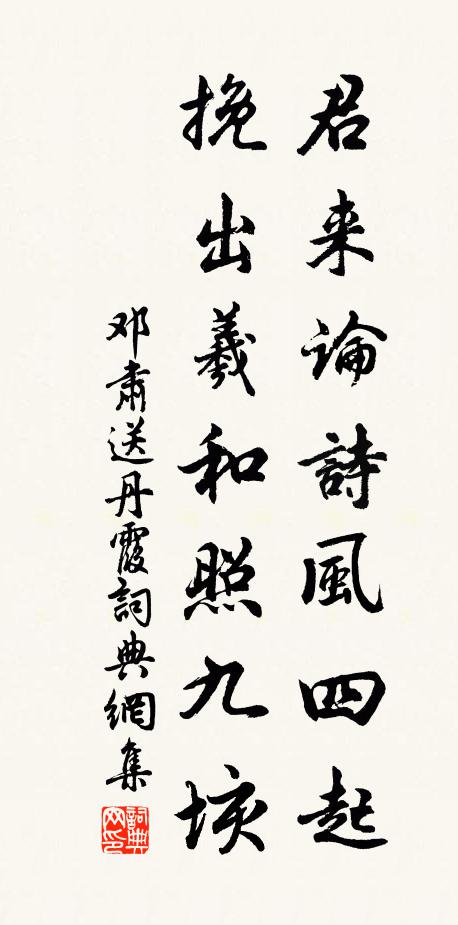 君来論詩風四起
挽出羲和照九垓
邓肃送丹霞詞典網集
詞典網印